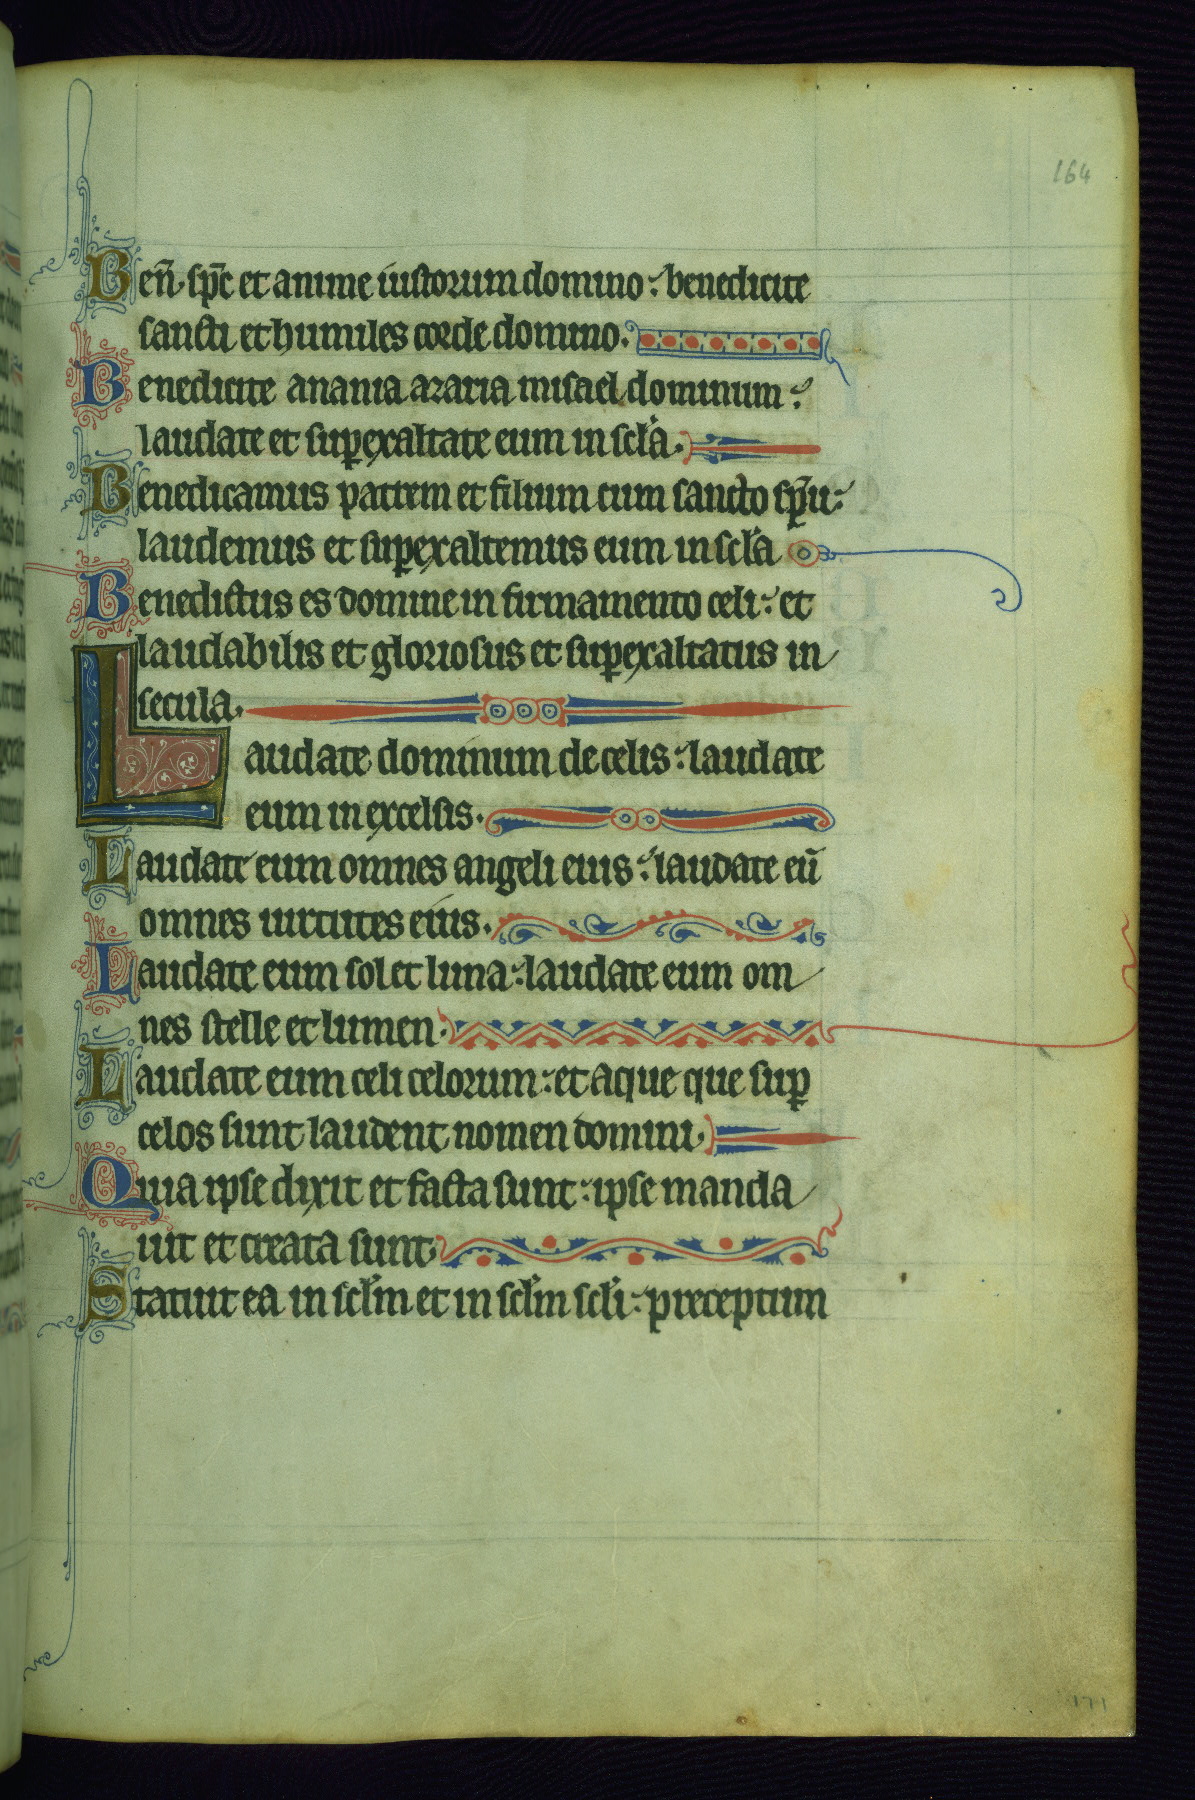 164
Ben̄. sp̄c et anime iustorum domino: benedicite
sancti et humiles corde domino.
Benedicite anania azaria misael dominum:
laudate et suꝑexaltate eum in scl̄a.
Benedicamus patrem et filium cum sancto sp̄u:
laudemus et suꝑexaltemus eum in scl̄a
Benedictus es domine in firmamento celi: et
laudabilis et gloriosus et suꝑexaltatus in
secula.
Laudate dominum de celis: laudate
eum in excelsis.
Laudate eum omnes angeli eius: laudate eū
omnes uirtutes eius.
Laudate eum sol et luna: laudate eum om
nes stelle et lumen.
Laudate eum celi celorum: et aque que suꝑ
celos sunt laudent nomen domini.
Quia ipse dixit et facta sunt: ipse manda
uit et creata sunt.
Statuit ea in scl̄m et in scl̄m scl̄i: preceptum
171